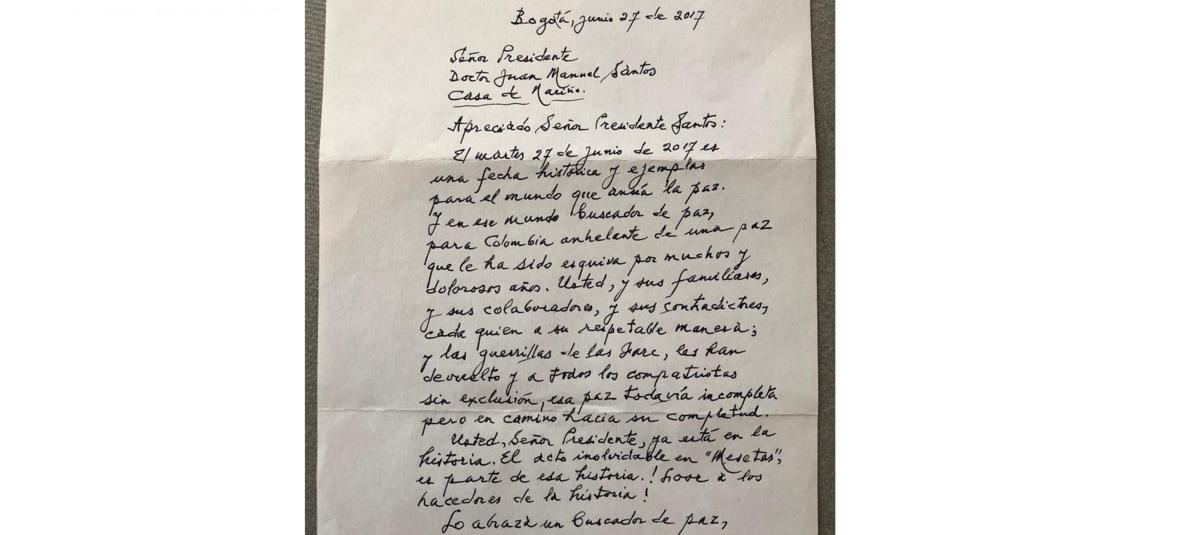 Bogotá, junio 27 de 2017
Señor Presidente
Doctor Juan Manuel Santos
Casa de Nariño.
Apreciado Señor Presidente Santos:
El martes 27 de junio de 2017 es
una fecha histórica y ejemplar
para el mundo que ansía la paz.
Y en ese mundo buscador de paz,
para Colombia anhelante de una paz
que le ha sido esquiva por muchos y
dolorosos años. Usted, y sus familiares,
y sus colaboradores, y sus contradictores,
cada quien a su respetable manera;
y las guerrillas de las Farc, les han
devuelto y a todos los compatriotas
sin exclusión, esa paz todavía incompleta
pero en camino hacia su completud.
Usted, Señor Presidente, ya está en la
historia. El acto inolvidable en "Mesetas",
es parte de esa historia. ! a los
hacedores de la historia !
Lo abraza un buscador de paz,